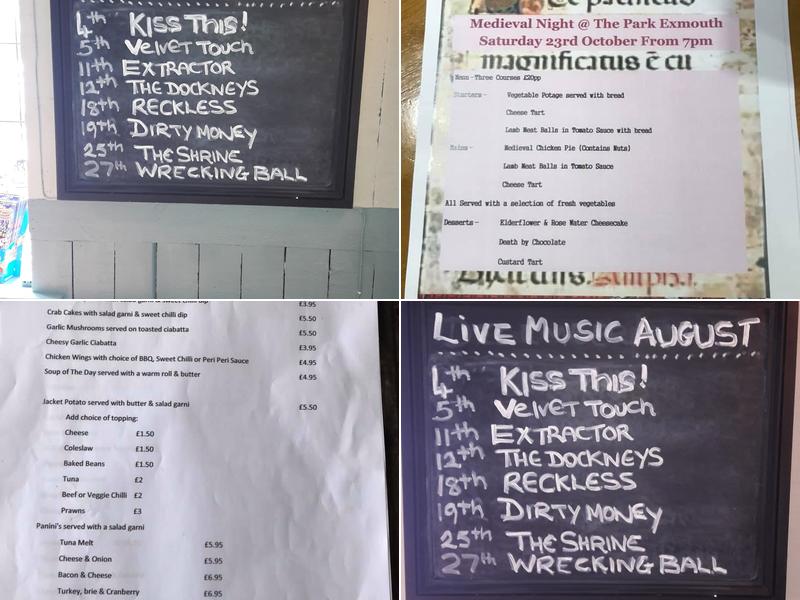 4th KISS THIS!
5th VELVET TOUCH
11th EXTRACTOR
12th THE DOCKNEYS
18th RECKLESS
19th DIRTY MONEY
25th THE SHRINE
27th WRECKING BALL
Medieval Night @ The Park Exmouth
Saturday 23rd October From 7pm
magnificatus ē cu
Menu -Three Courses £20pp
Starters - Vegetable Potage served with bread
Cheese Tart
Lamb Meat Balls in Tomato Sauce with bread
Mains - Medieval Chicken Pie (Contains Nuts)
Lamb Meat Balls in Tomato Sauce
Cheese Tart
All Served with a selection of fresh vegetables
Desserts - Elderflower & Rose Water Cheesecake
Death by Chocolate
Custard Tart
garni & sweet chilli dip £3.95
Crab Cakes with salad garni & sweet chilli dip £5.50
Garlic Mushrooms served on toasted ciabatta £5.50
Cheesy Garlic Ciabatta £3.95
Chicken Wings with choice of BBQ, Sweet Chilli or Peri Peri Sauce £4.95
Soup of The Day served with a warm roll & butter £4.95
Jacket Potato served with butter & salad garni £5.50
Add choice of topping:
Cheese £1.50
Coleslaw £1.50
Baked Beans £1.50
Tuna £2
Beef or Veggie Chilli £2
Prawns £3
Panini's served with a salad garni
Tuna Melt £5.95
Cheese & Onion £5.95
Bacon & Cheese £6.95
Turkey, brie & Cranberry £6.95
LIVE MUSIC AUGUST
4th KISS THIS!
5th VELVET TOUCH
11th EXTRACTOR
12th THE DOCKNEYS
18th RECKLESS
19th DIRTY MONEY
25th THE SHRINE
27th WRECKING BALL